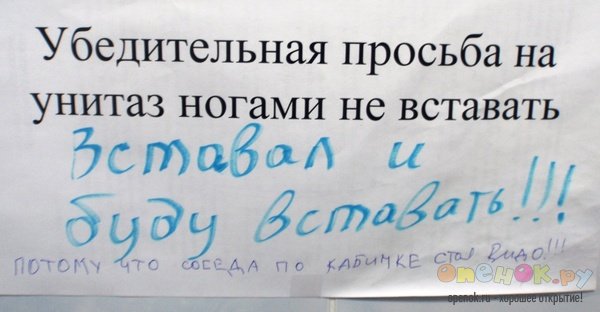 Убедительная просьба на
унитаз ногами не вставать
Вставал и
буду вставать!!!
ПОТОМУ ЧТО СОСЕДА ПО КАБИНКЕ СТАЛ ВИДО!!!
опенок.ру
openok.ru - хорошее открытие!